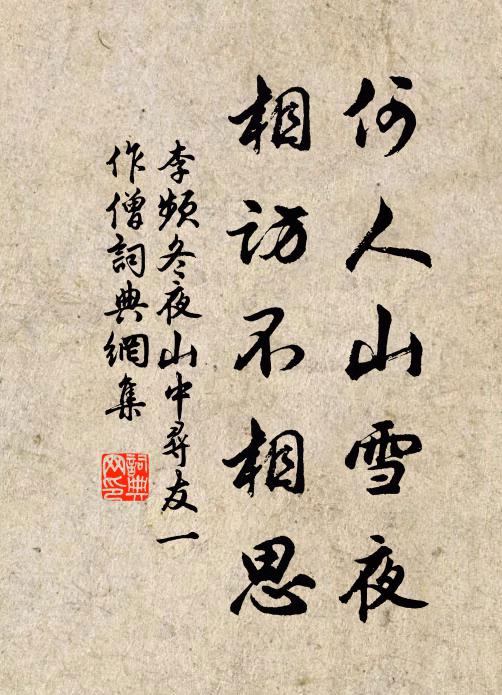 何人山雪夜
相訪不相思
李頻冬夜山中尋友一
作僧詞典網集
詞典網印